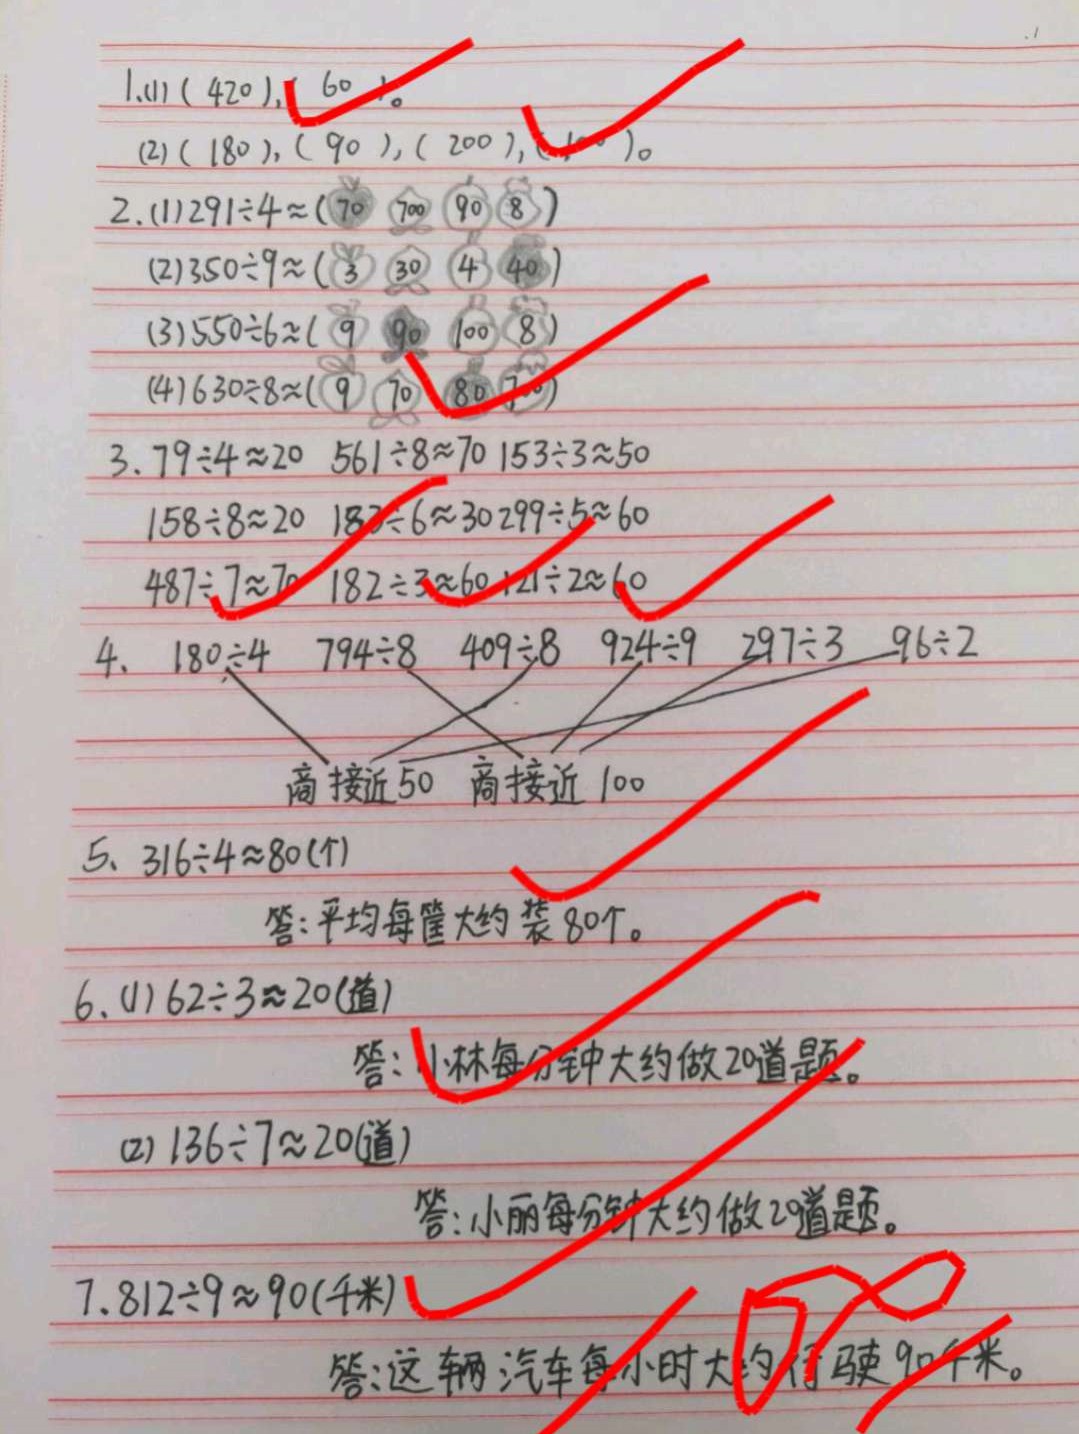 1.(1)(420),(60)。
(2)(180),(90),(200),(100)。
2.(1)291÷4≈(70 700 90 8)
(2)350÷9≈(3 30 4 40)
(3)550÷6≈(9 90 100 8)
(4)630÷8≈(9 70 80 700)
3.79÷4≈20 561÷8≈70 153÷3≈50
158÷8≈20 183÷6≈30 299÷5≈60
487÷7≈70 182÷3≈60 121÷2≈60
4、180÷4 794÷8 409÷8 924÷9 297÷3 96÷2
商接近50 商接近100
5、316÷4≈80(个)
答:平均每筐大约装80个。
6、(1)62÷3≈20(道)
答:小林每分钟大约做20道题。
(2)136÷7≈20(道)
答:小丽每分钟大约做20道题。
7.812÷9≈90(千米)
答:这辆汽车每小时大约行驶90千米。